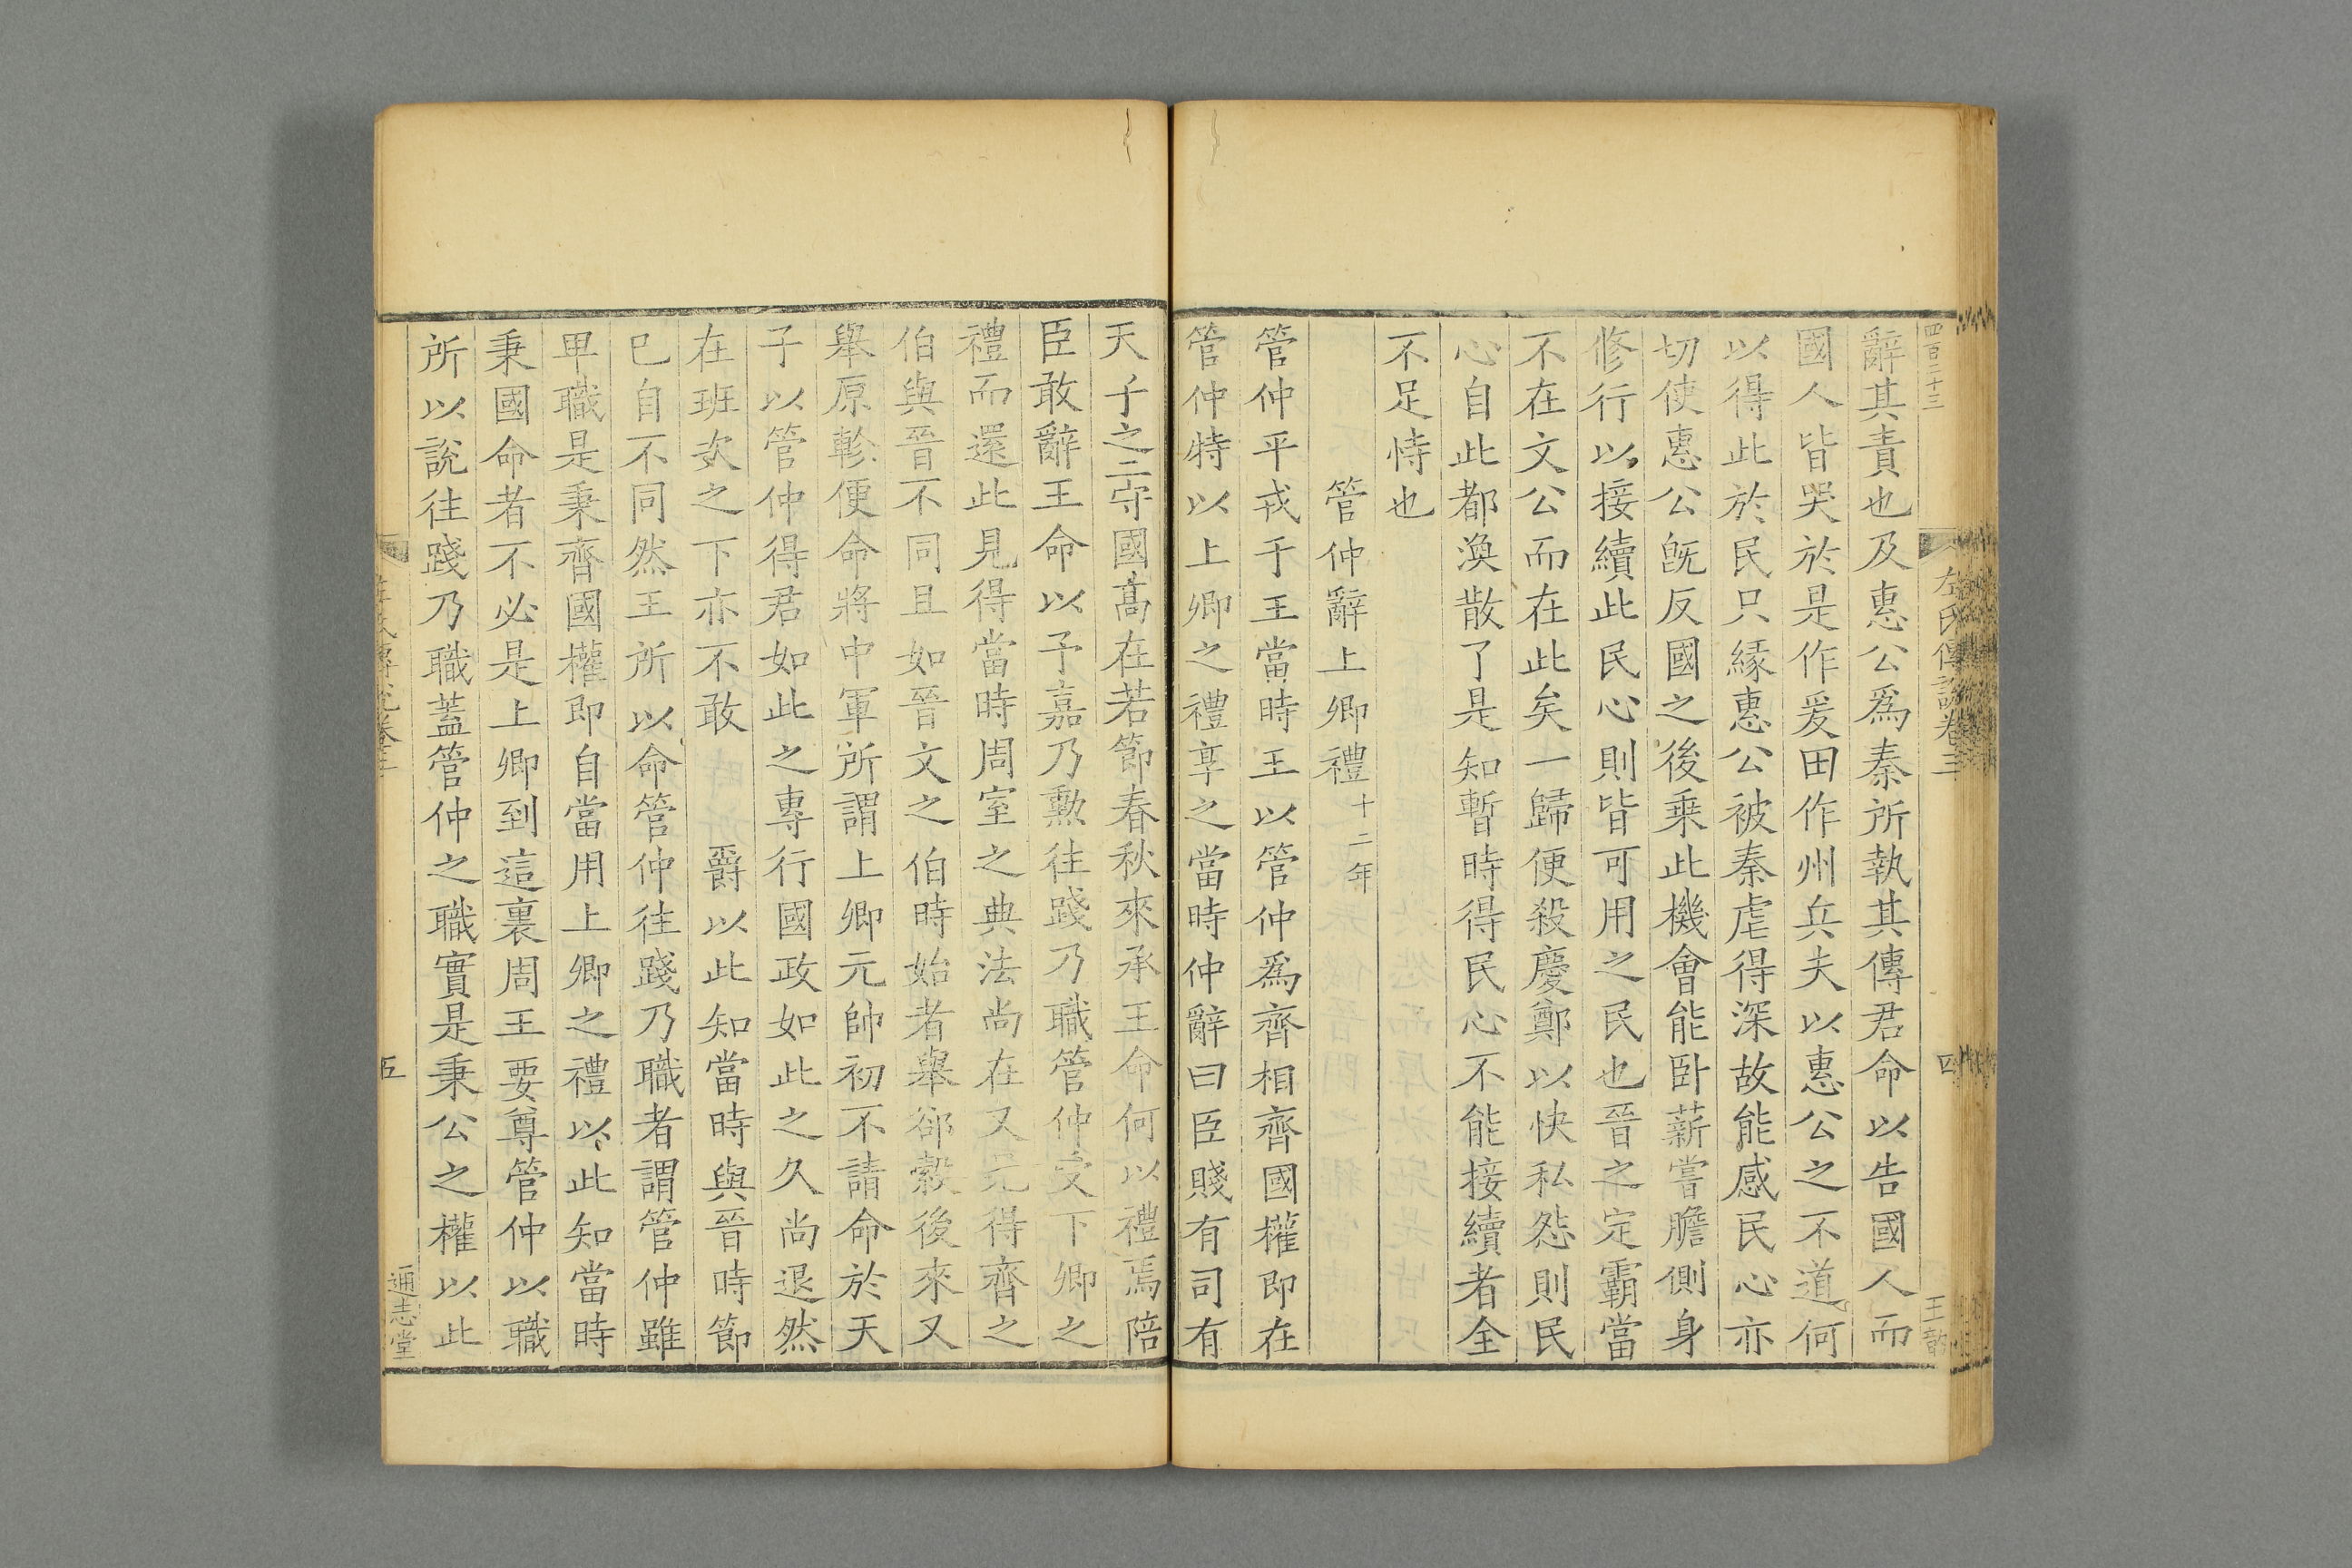 四百二十三
左氏傳說卷三
四
王
辭其責也及惠公爲秦所執其傳君命以告國人而
國人皆哭於是作爰田作州兵夫以惠公之不道何
以得此於民只緣惠公被秦虐得深故能感民心亦
切使惠公旣反國之後乗此機會能卧薪嘗膽側身
修行以接續此民心則皆可用之民也晉之定霸當
不在文公而在此矣一歸便殺慶鄭以快私怨則民
心自此都渙散了是知暫時得民心不能接續者全
不足恃也
管仲辭上卿禮十二年
管仲平戎于王當時王以管仲爲齊相齊國權即在
管仲特以上卿之禮享之當時仲辭曰臣賤有司有
天子之二守國髙在若節春秋來承王命何以禮焉陪
臣敢辭王命以予嘉乃勲往踐乃職管仲受下卿之
禮而還此見得當時周室之典法尚在又見得齊之
伯與晉不同且如晉文之伯時始者舉郤縠後來又
舉原軫便命將中軍所謂上卿元帥初不請命於天
子以管仲得君如此之專行國政如此之久尚退然
在班次之下亦不敢爵以此知當時與晉時節
巳自不同然王所以命管仲往踐乃職者謂管仲雖
甲職是秉齊國權即自當用上卿之禮以此知當時
秉國命者不必是上卿到這裏周王要尊管仲以職
所以說往踐乃職蓋管仲之職實是秉公之權以此
五
通志堂